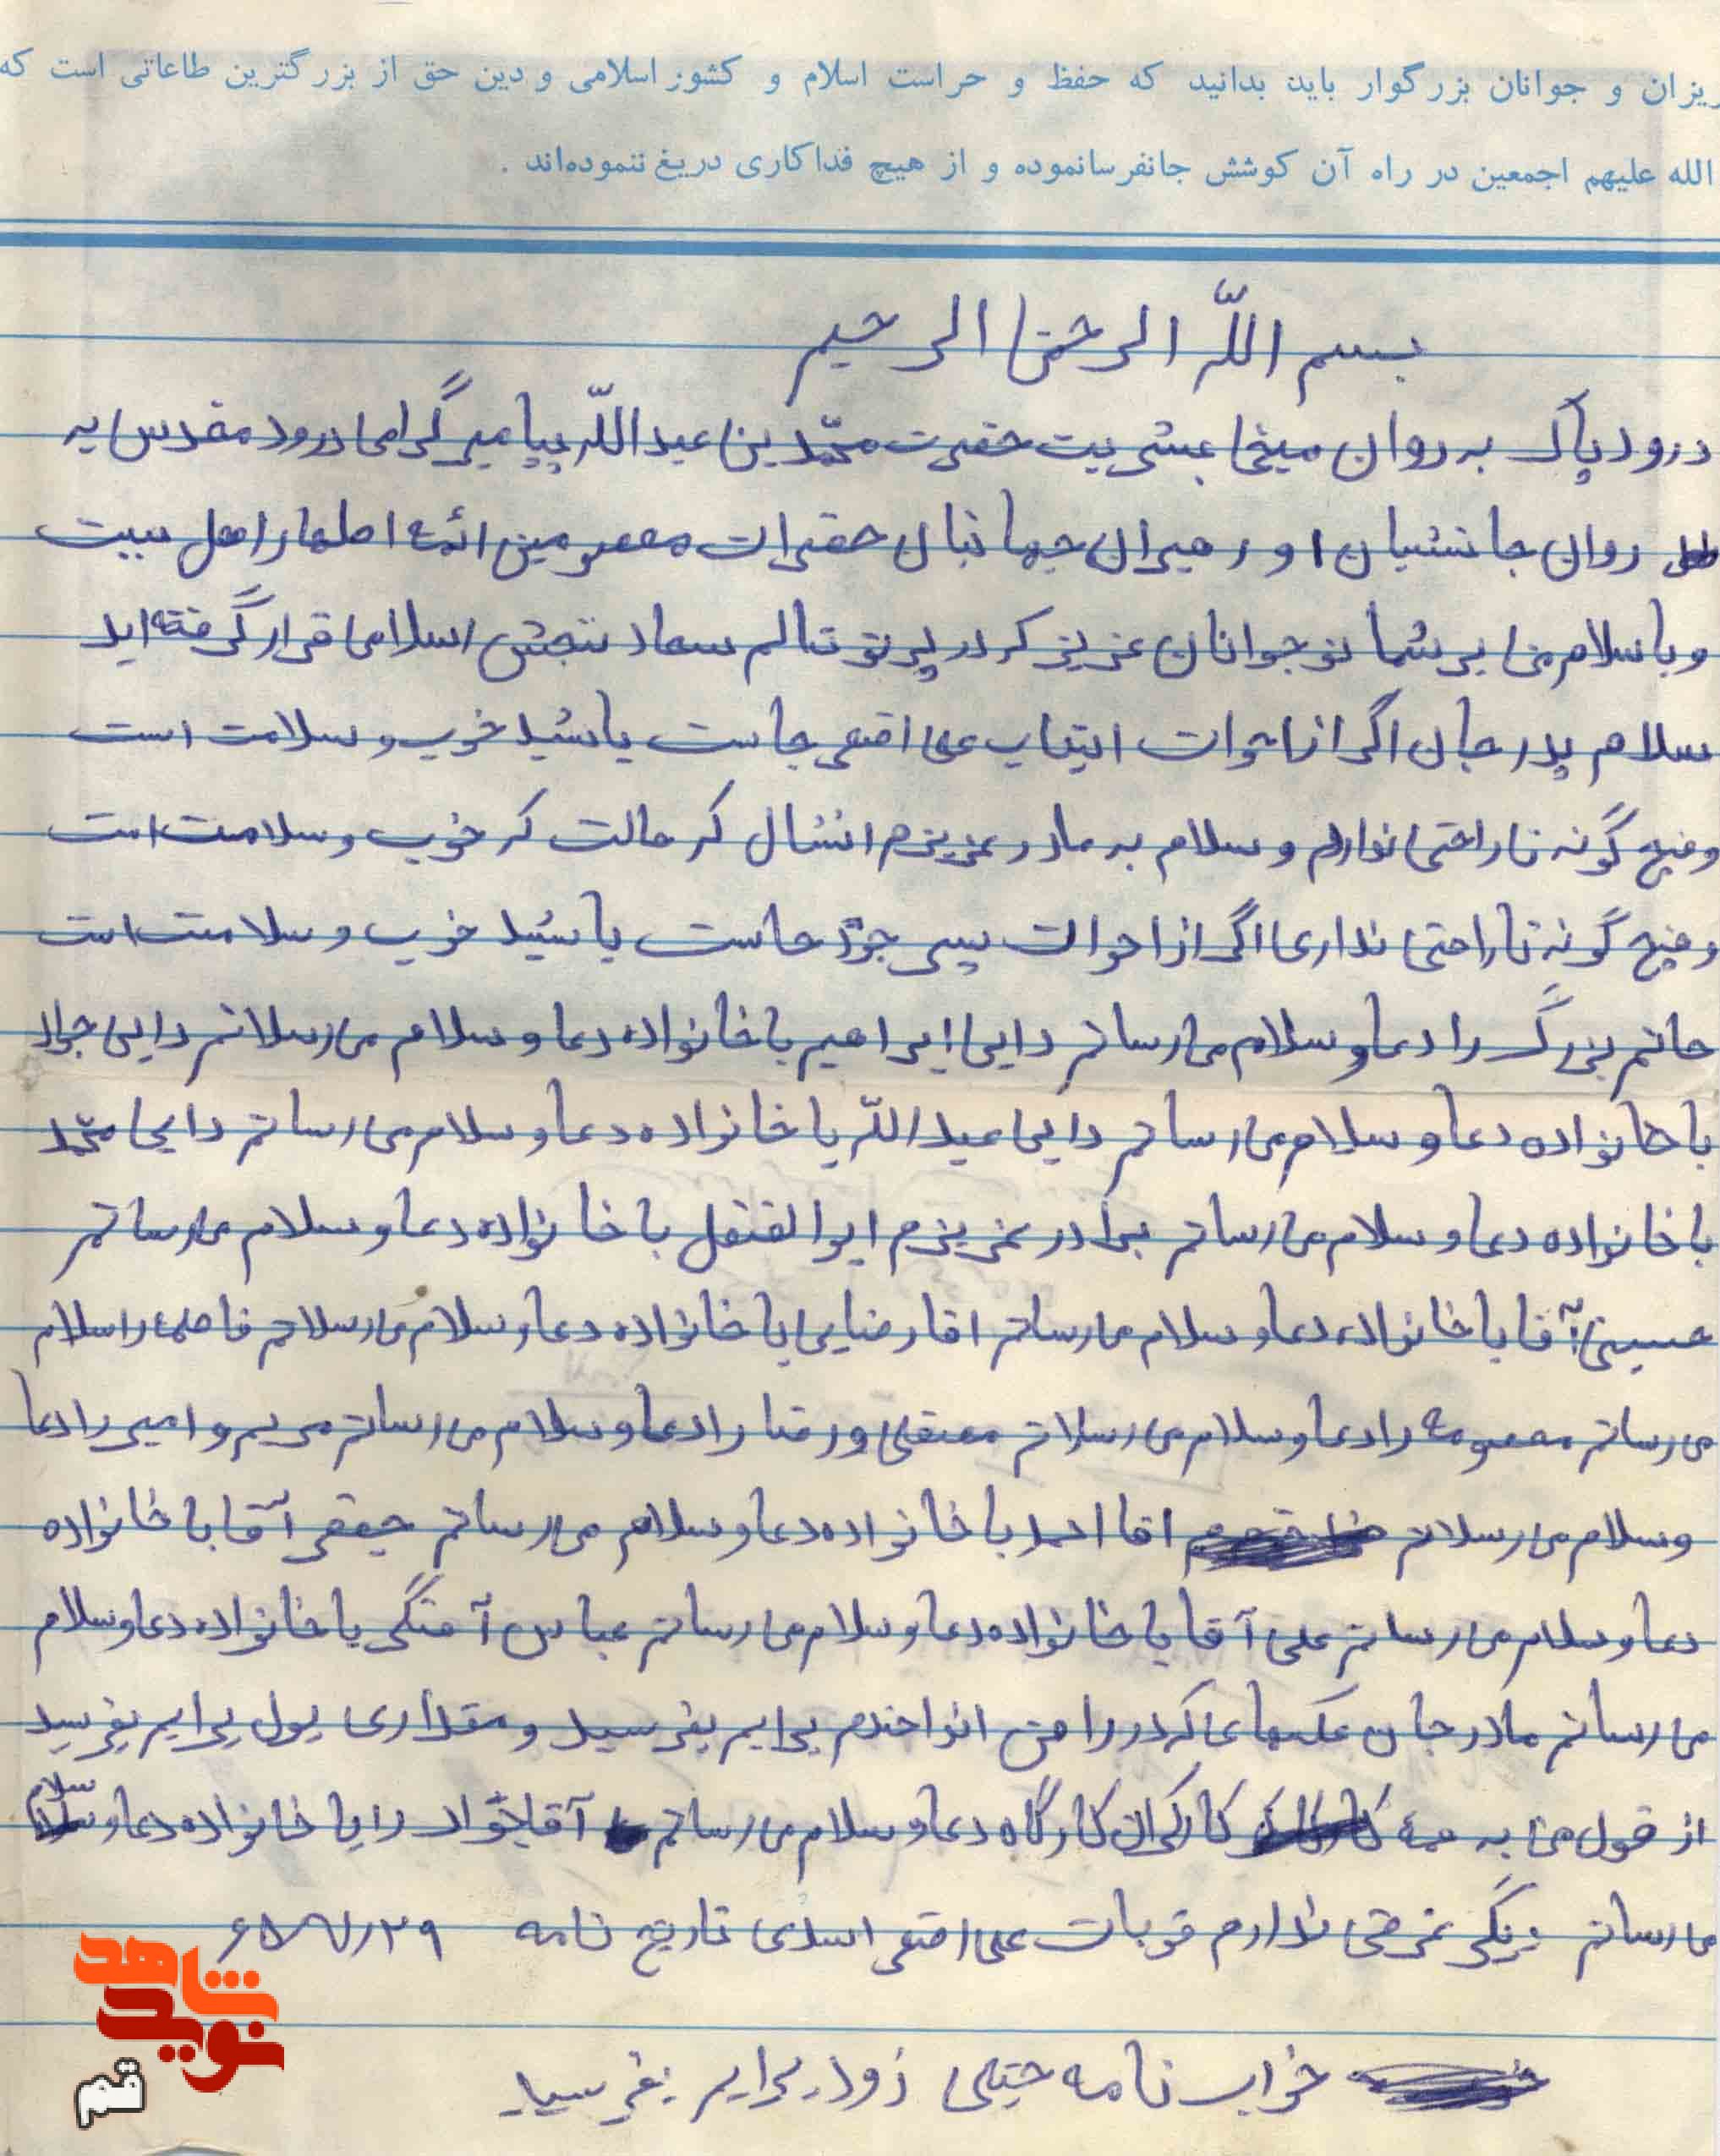 ریزان و جوانان بزرگوار باید بدانید که حفظ و حراست اسلام و کشور اسلامی و دین حق از بزرگترین طاعاتی است که
الله علیهم اجمعین در راه آن کوشش جانفرسا نموده و از هیچ فداکاری دریغ ننموده‌اند .
بسم اللّه الرحمن الرحیم
درود پاک به روان میخا بشریت حضرت محمّد بن عبداللّه پیامبر گرامی درود مقدس به
روان جانشیان او رهبران جهانبان حضرات معصومین ائمه اطهار اهل بیت
و با سلام من بر شما نوجوانان عزیز که در پرتو تعالم سعاد تبخش اسلامی قرار گرفته اید
سلام پدر جان اگر از احوات اینجاب علی اصغر جاست باشید خوب و سلامت است
و هیچ گونه ناراحتی ندارام و سلام به مادر عزیزم انشال که حالت که خوب و سلامت است
و هیچ گونه ناراحتی نداری اگر از احوالت پسر خود حاست باشید خوب و سلامت است
خانم بزرگ را دعا و سلام می رسانم دایی ابراهیم با خانواده دعا و سلام می رسلانم دایی جواد
با خانواده دعا و سلام می رسانم دایی عبداللّه با خانواده دعا و سلام می رسانم دایی محمّد
با خانواده دعا و سلام می رسانم برادر عزیزم ابوالفضل با خانواده دعا و سلام می رسانم
حسین آقا با خانواده دعا و سلام می رسانم اقا رضایی با خانواده دعا و سلام می رسلانم فاطمه را سلام
می رسانم معصومه را دعا و سلام می رسلانم و رضا را دعا و سلام می رسانم مریم و امیر را دعا
و سلام می رسلانم اقا احمد با خانواده دعا و سلام می رسانم جعفر آقا با خانواده
دعا و سلام می رسانم علی آقا با خانواده دعا و سلام می رسانم عباس آهنگر با خانواده دعا و سلام
می رسانم مادر جان عکسهای که در را من انداختم برایم بفرسید و مقداری پول برایم بفرسید
از قول من به همه کارگران کارگاه دعا و سلام می رسانم آقا جوّاد را با خانواده دعا و سلام
می رسانم دیگر عرضی ندارم قربات علی اصغر اسدی تاریخ نامه ۶۵/۷/۲۹
خواب نامه خیلی زود برایم بفرسید
شاهد
نوید
قم